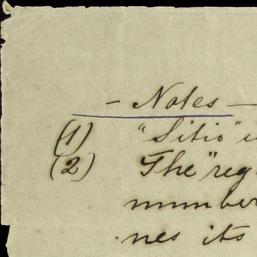 - Notes -
(1) "Sitio" i
(2) The "reg
number
nes its